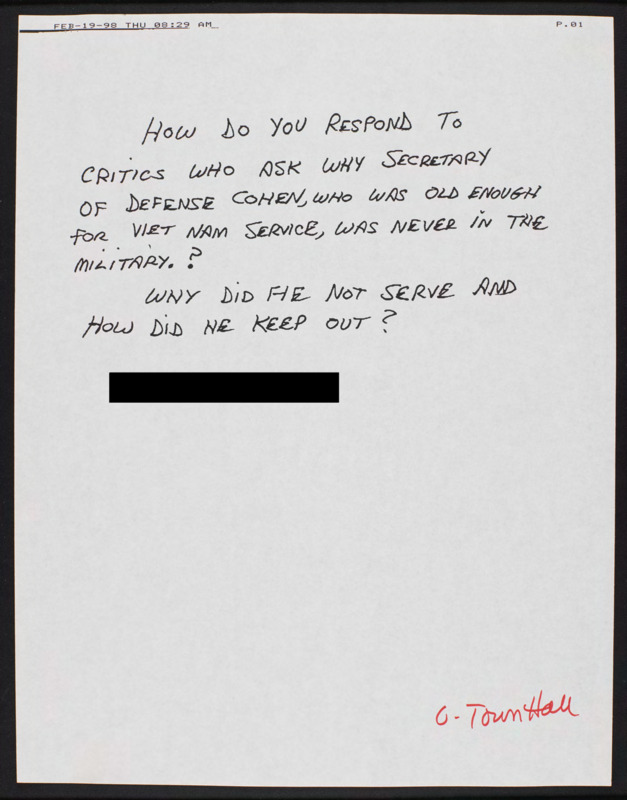 FEB-19-98 THU 08:29 AM P.01
HOW DO YOU RESPOND TO
CRITICS WHO ASK WHY SECRETARY
OF DEFENSE COHEN, WHO WAS OLD ENOUGH
FOR VIET NAM SERVICE, WAS NEVER IN THE
MILITARY.?
WHY DID HE NOT SERVE AND
HOW DID HE KEEP OUT?
C - Town Hall